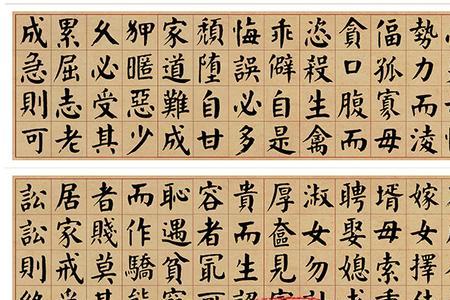 勢力而凌
偪孤寡毋
貪口腹而
恣殺生禽
乖僻自是
悔誤必多
頹堕自甘
家道難成
狎暱惡少
久必受其
累屈志老
成急則可
嫁女擇
壻毋索
聘娶媳
淑女勿
厚奩見
貴而生
容者最可
恥遇貧窮
而作驕態
者賤莫甚
居家戒爭
訟訟則終